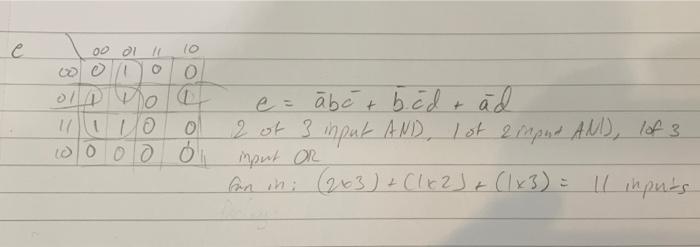 e
00 01 11 10
00 0 1 0 0
01 1 1 0 1
11 1 1 0 0
10 0 0 0 0
e = a̅bc̅ + b̅.c̅d + a̅d̅
2 of 3 input AND, 1 of 2 input AND, 1 of 3
input OR
fan in: (2x3) + (1x2) + (1x3) = 11 inputs